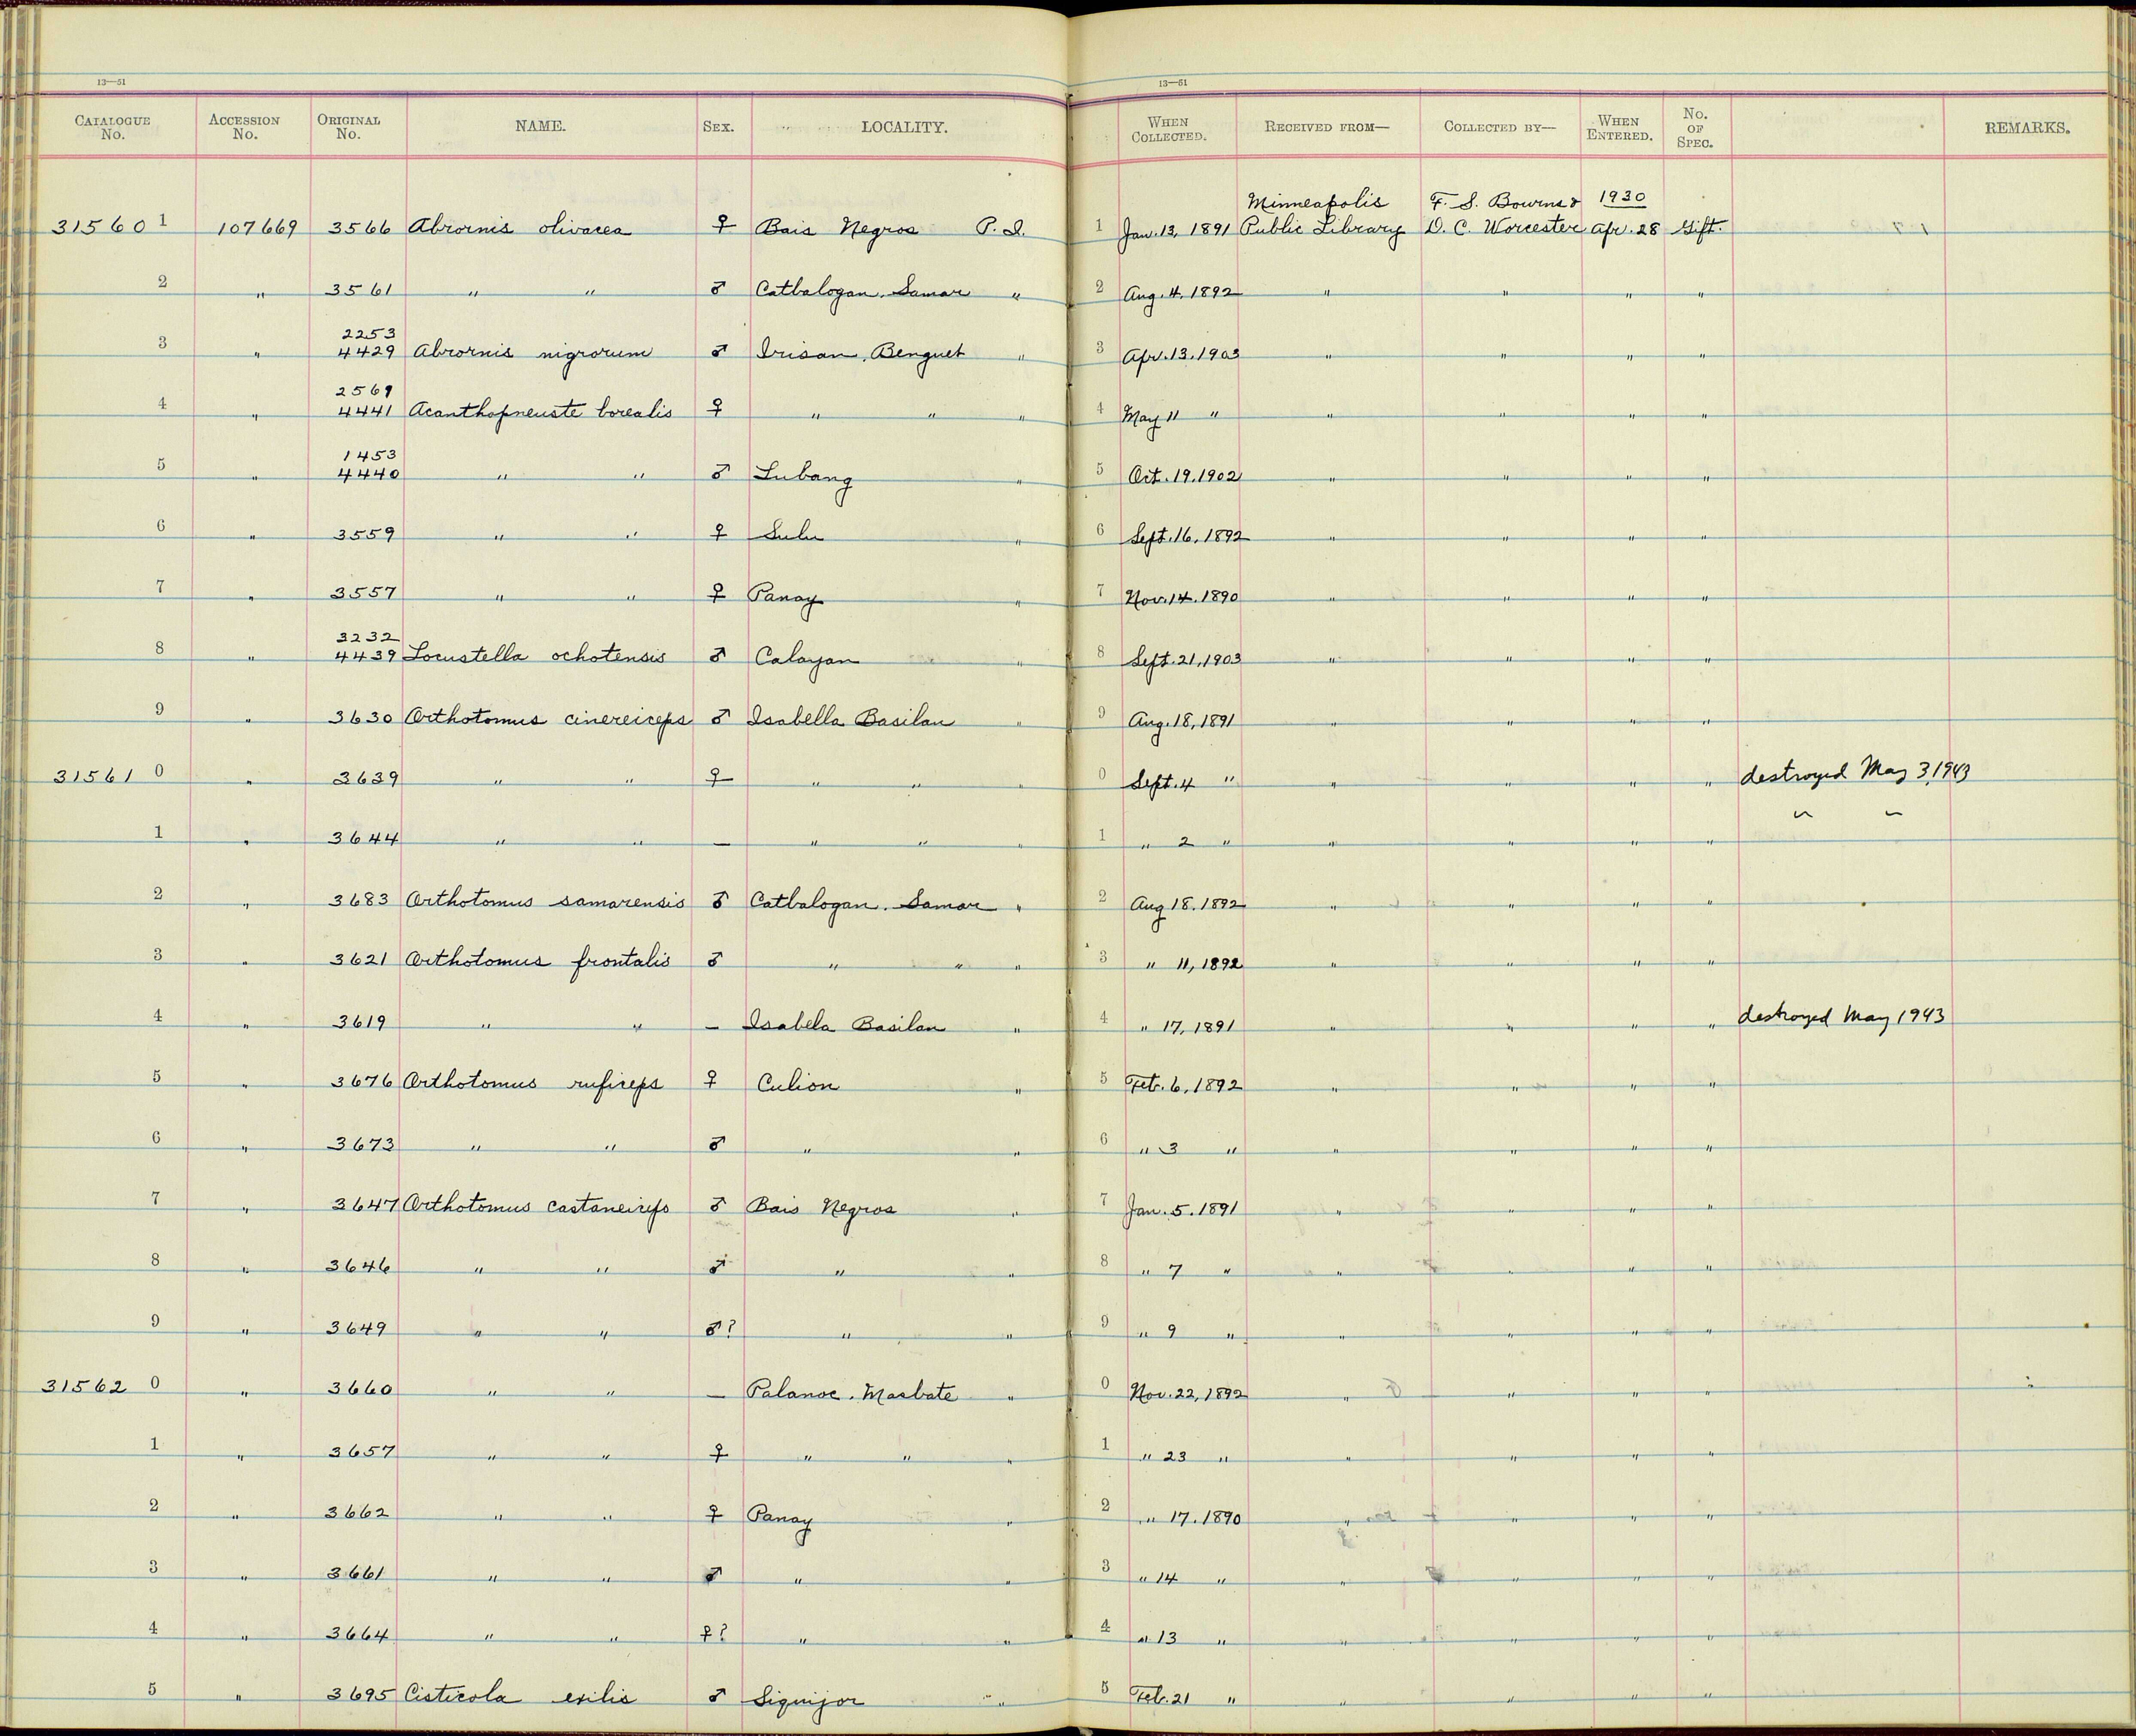 13—51 13—51
CATALOGUE No. ACCESSION No. ORIGINAL No. NAME. SEX. LOCALITY. WHEN COLLECTED. RECEIVED FROM— COLLECTED BY— WHEN ENTERED. No. OF SPEC. REMARKS.
Minneapolis F. S. Bourns & 1930
31560 1 107669 3566 Abrornis olivacea ♀ Bais Negros P. I. 1 Jan. 13, 1891 Public Library D. C. Worcester Apr. 28 Gift.
2 " 3561 " " ♂ Catbalogan, Samar " 2 Aug. 4, 1892 " " " "
2253
3 " 4429 Abrornis nigrorum ♂ Irisan, Benguet " 3 Apr. 13. 1903 " " " "
2569
4 " 4441 Acanthopneuste borealis ♀ " " " 4 May 11 " " " " "
1453
5 " 4440 " " ♂ Lubang " 5 Oct. 19. 1902 " " " "
6 " 3559 " " ♀ Sulu " 6 Sept. 16, 1892 " " " "
7 " 3557 " " ♀ Panay " 7 Nov. 14. 1890 " " " "
3232
8 " 4439 Locustella ochotensis ♂ Calayan " 8 Sept. 21, 1903 " " " "
9 " 3630 Orthotomus cinereiceps ♂ Isabella Basilan " 9 Aug. 18, 1891 " " " "
31561 0 " 3639 " " ♀ " " " 0 Sept. 4 " " " " " destroyed May 3, 1943
1 " 3644 " " — " " " 1 " 2 " " " " " " "
2 " 3683 Orthotomus samarensis ♂ Catbalogan. Samar " 2 Aug 18. 1892 " " " "
3 " 3621 Orthotomus frontalis ♂ " " " 3 " 11, 1892 " " " "
4 " 3619 " " — Isabela Basilan " 4 " 17, 1891 " " " " destroyed May 1943
5 " 3676 Orthotomus ruficeps ♀ Culion " 5 Feb. 6, 1892 " " " "
6 " 3673 " " ♂ " " 6 " 3 " " " " "
7 " 3647 Orthotomus castaneiceps ♂ Bais Negros " 7 Jan. 5. 1891 " " " "
8 " 3646 " " ♂ " " 8 " 7 " " " " "
9 " 3649 " " ♂? " " 9 " 9 " " " " "
31562 0 " 3660 " " — Palanoc. Masbate " 0 Nov. 22, 1892 " " " "
1 " 3657 " " ♀ " " " 1 " 23 " " " " "
2 " 3662 " " ♀ Panay " 2 " 17. 1890 " " " "
3 " 3661 " " ♂ " " 3 " 14 " " " " "
4 " 3664 " " ♀? " " 4 " 13 " " " " "
5 " 3695 Cisticola exilis ♂ Siquijor " 5 Feb. 21 " " " " "